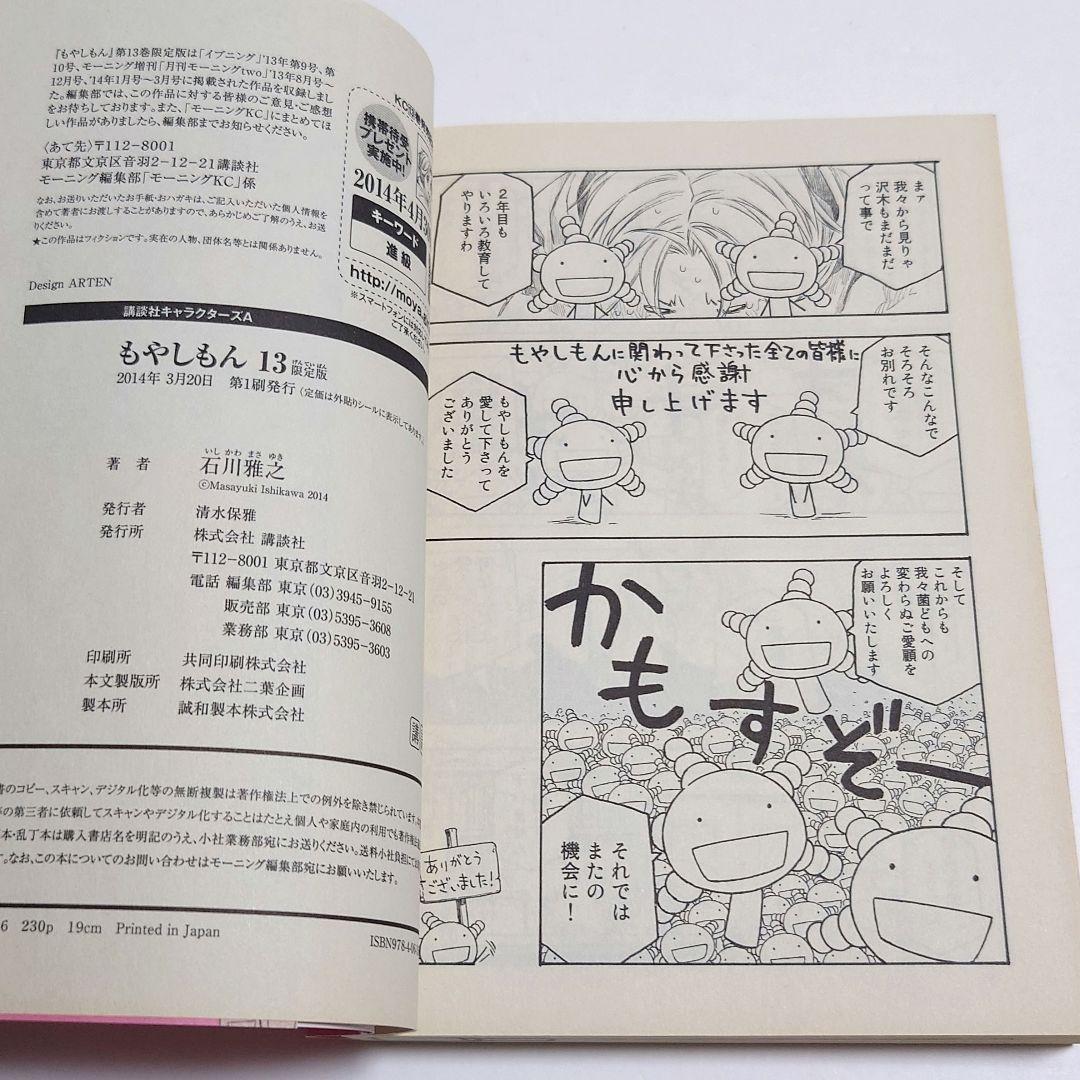 『もやしもん』第13巻限定版は「イブニング」'13年第9号、第
10号、モーニング増刊「月刊モーニングtwo」'13年8月号〜
12月号、'14年1月号〜3月号に掲載された作品を収録しまし
た。編集部では、この作品に対する皆様のご意見・ご感想
をお待ちしております。また、「モーニングKC」にまとめてほ
しい作品がありましたら、編集部までお知らせください。
〈あて先〉〒112−8001
東京都文京区音羽2−12−21講談社
モーニング編集部「モーニングKC」係
なお、お送りいただいたお手紙・おハガキは、ご記入いただいた個人情報を
含めて著者にお渡しすることがありますので、あらかじめご了解のうえ、お送
りください。
★この作品はフィクションです。実在の人物、団体名等とは関係ありません。
Design ARTEN
携帯待受
プレゼント
実施中!
2014年4月
キーワード
進級
http://moya
※スマートフォンには
ご了承ください
講談社キャラクターズA
もやしもん 13 限定版
げんていばん
2014年 3月20日 第1刷発行 (定価は外貼りシールに表示してあります。
いし かわ まさ ゆき
著者 石川雅之
©Masayuki Ishikawa 2014
発行者 清水保雅
発行所 株式会社 講談社
〒112−8001 東京都文京区音羽2−12−21
電話 編集部 東京(03)3945−9155
販売部 東京(03)5395−3608
業務部 東京(03)5395−3603
印刷所 共同印刷株式会社
本文製版所 株式会社二葉企画
製本所 誠和製本株式会社
書のコピー、スキャン、デジタル化等の無断複製は著作権法上での例外を除き禁じられています。
等の第三者に依頼してスキャンやデジタル化することはたとえ個人や家庭内の利用でも著作権法
本・乱丁本は購入書店名を明記のうえ、小社業務部宛にお送りください。送料小社負担にて
す。なお、この本についてのお問い合わせはモーニング編集部宛にお願いいたします。
6 230p 19cm Printed in Japan
ISBN978-4-06
まァ
我々から見りゃ
沢木もまだまだ
って事で
2年目も
いろいろ教育して
やりますわ
そんなこんなで
そろそろ
お別れです
もやしもんに関わって下さった全ての皆様に
心から感謝
申し上げます
もやしもんを
愛して下さって
ありがとう
ございました
そして
これからも
我々菌どもへの
変わらぬご愛顧を
よろしく
お願いいたします
かもすぞー
それでは
またの
機会に!
ありがとう
ございました!